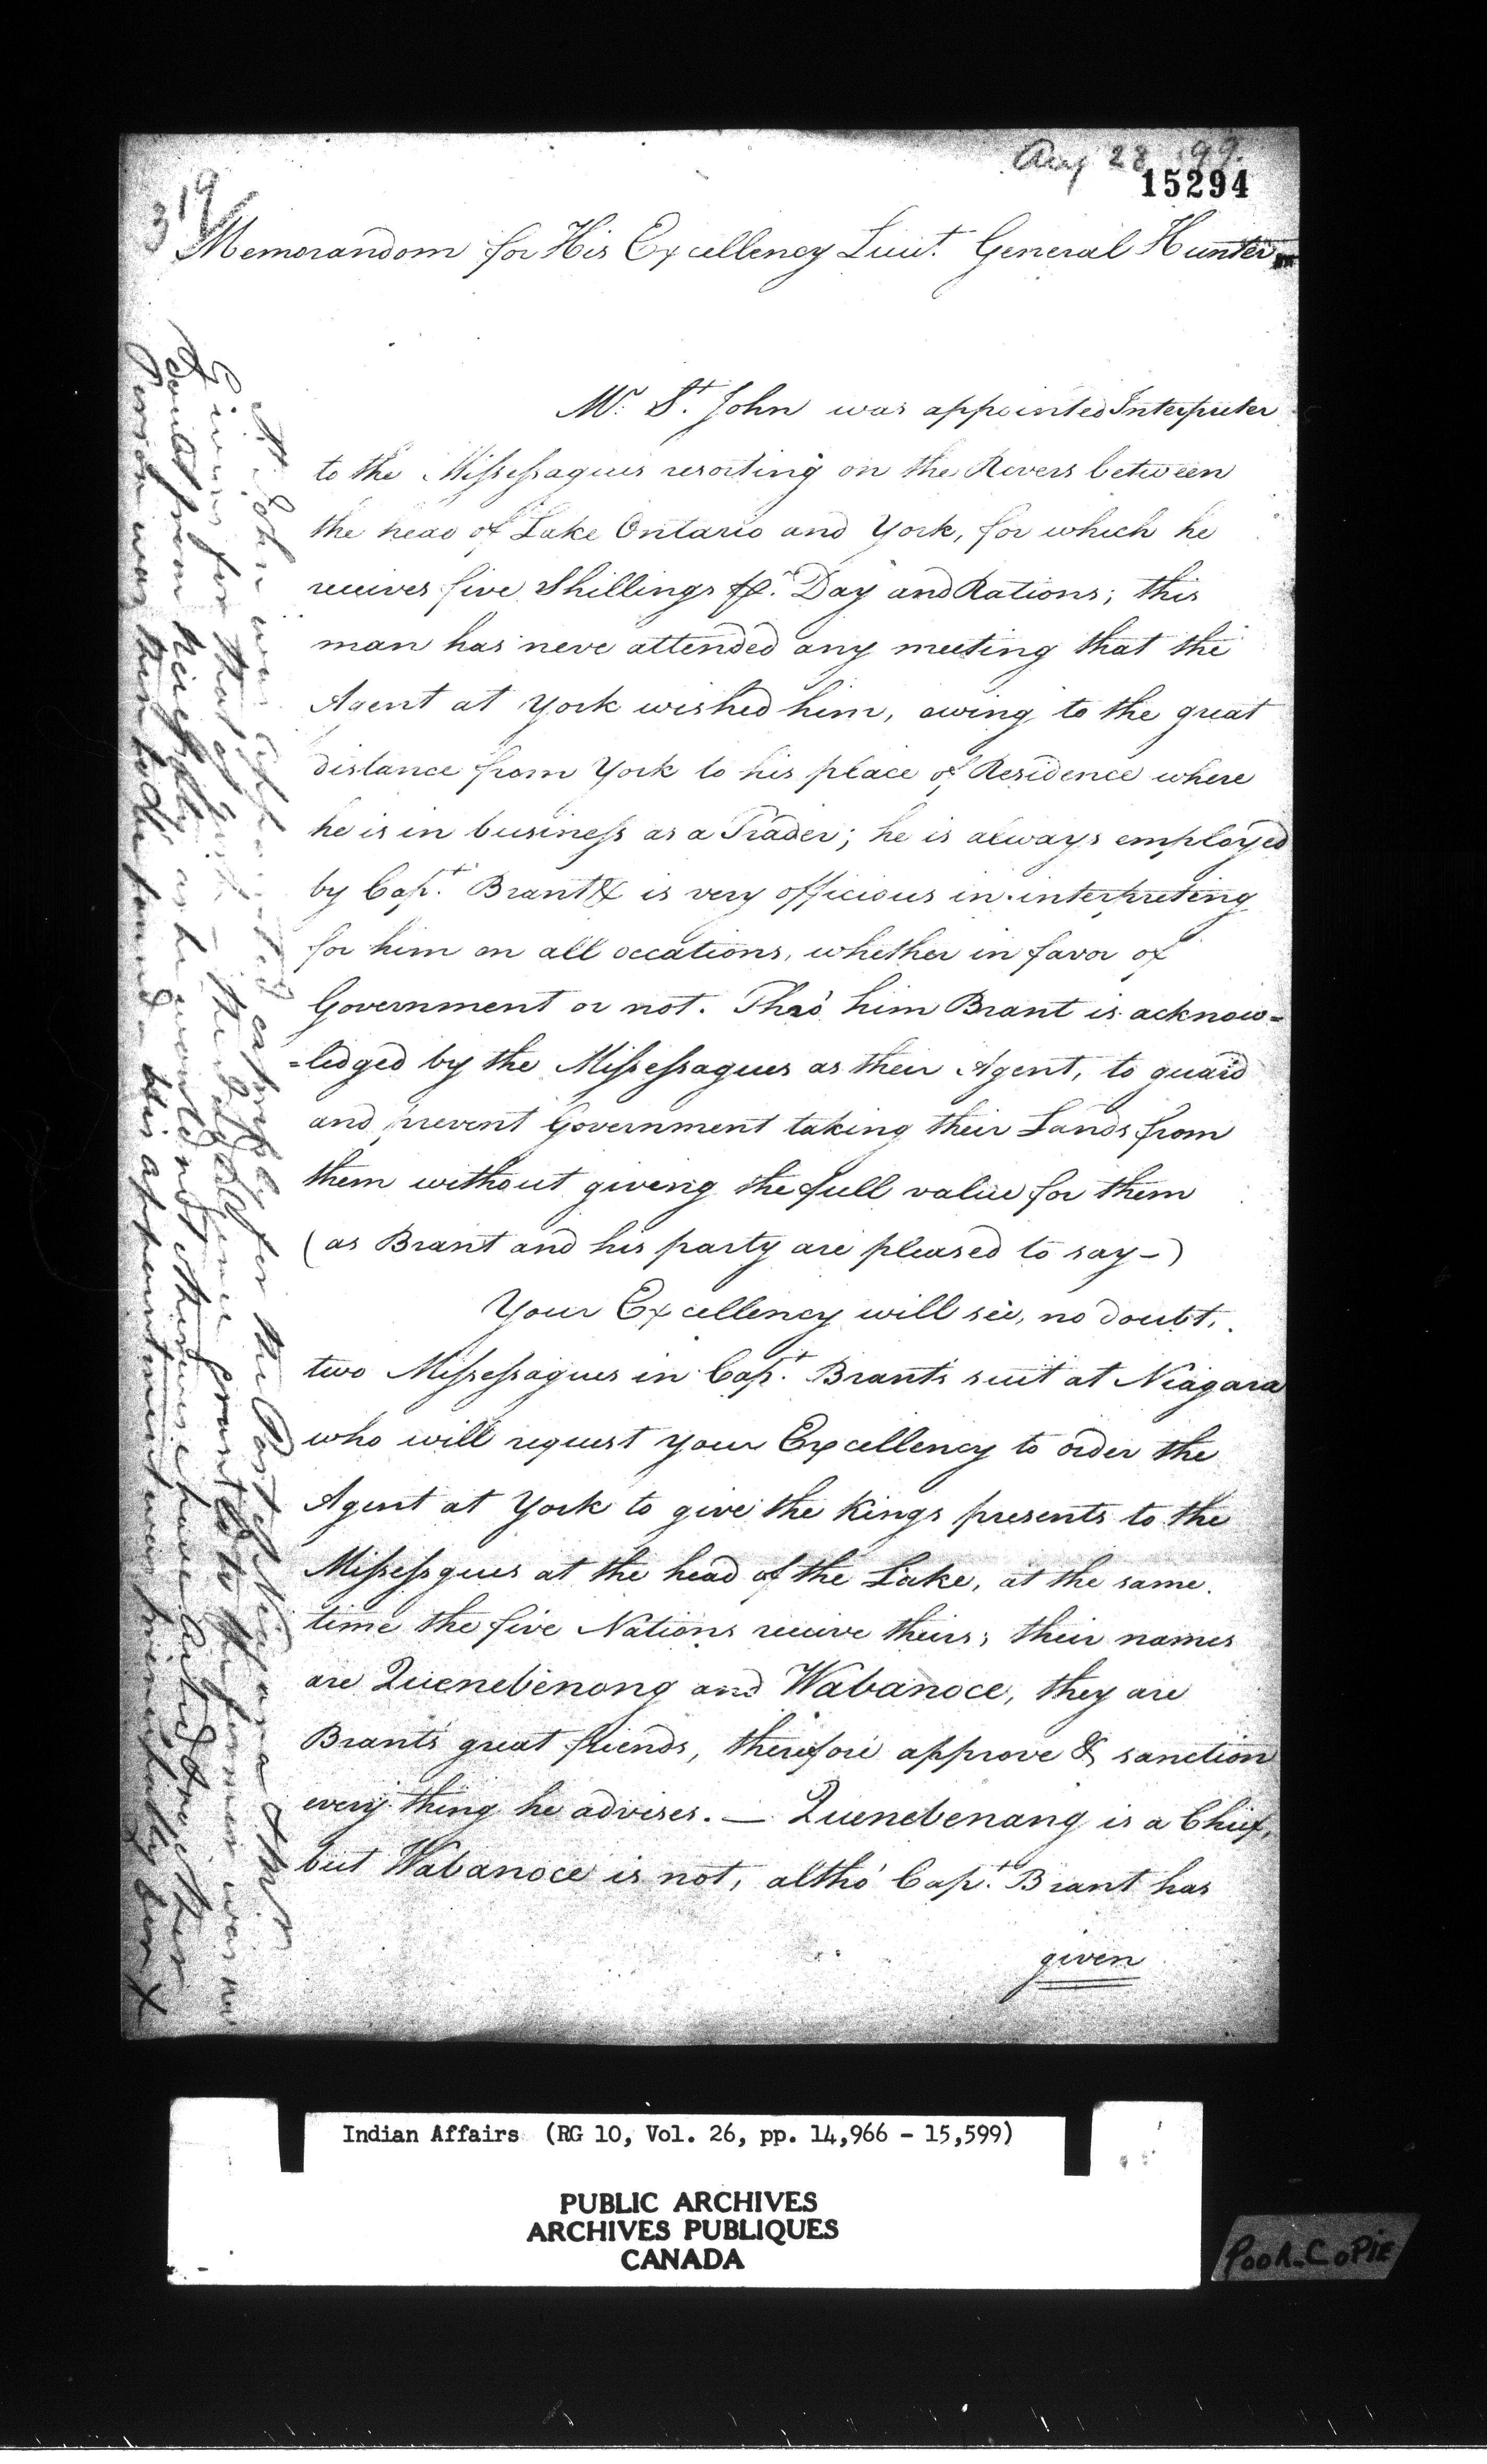 Aug 28 99.
15294
319
Memorandom for His Excellency Lieut. General Hunter
Mr. St. John was appointed Interpreter
to the Missessagues resorting on the Rivers between
the head of Lake Ontario and York, for which he
receives five Shillings pr. Day and Rations; this
man has neve attended any meeting that the
Agent at York wished him, owing to the great
distance from York to his place of Residence where
he is in business as a Trader; he is always employed
by Capt. Brant & is very officious in interpreting
for him on all occations, whether in favor of
Government or not. Thro' him Brant is acknow=
=ledged by the Missessagues as their Agent, to guard
and prevent Government taking their Lands from
them without giving the full value for them
(as Brant and his party are pleased to say-)
Your Excellency will see, no doubt,
two Missessagues in Capt. Brant's suit at Niagara
who will request your Excellency to order the
Agent at York to give the Kings presents to the
Missessgues at the head of the Lake, at the same
time the five Nations receive theirs; their names
are Quenebenong and Wabanoce, they are
Brants great friends, therefore approve & sanction
every thing he advises. — Quenebenang is a Chief,
but Wabanoce is not, altho' Capt. Brant has
given
St John was appointed expressly for the Post of Niagara &
Givins for that of York – the
doubt from necessity as he would not otherwise have
Person was then to be found – His appointment was
Indian Affairs (RG 10, Vol. 26, pp. 14,966 - 15,599)
PUBLIC ARCHIVES
ARCHIVES PUBLIQUES
CANADA
POOR COPIE